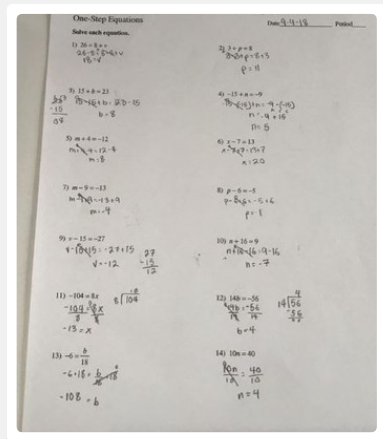 One-Step Equations
Date 9-4-18 Period
Solve each equation.
1) 26 = 8 + v
26-8=8-8+v
18=v
2) 3 + p = 8
p = 11
3) 15 + b = 23
15-15+b = 23-15
b=8
-15
08
4) -15 + n = -9
n= -9 + 15
n= 5
5) m + 4 = -12
m= 8
6) x - 7 = 13
x-7+7=13+7
x=20
7) m - 9 = -13
m-9+9=-13+9
m=-4
8) p - 6 = -5
p-6+6=-5+6
p= 1
9) v - 15 = -27
v-15+15= -27+15
v=-12
27
-15
12
10) n + 16 = 9
n+16-16=9-16
n= -7
11) -104 = 8x
-104 = 8x
8 8
-13=x
8 104
12) 14b = -56
14b = -56
b=4
4
14 56
-56
13) -6 = b/18
-6·18= b/18 ·18
-108 = b
14) 10m = 40
10m = 40
10 10
m=4